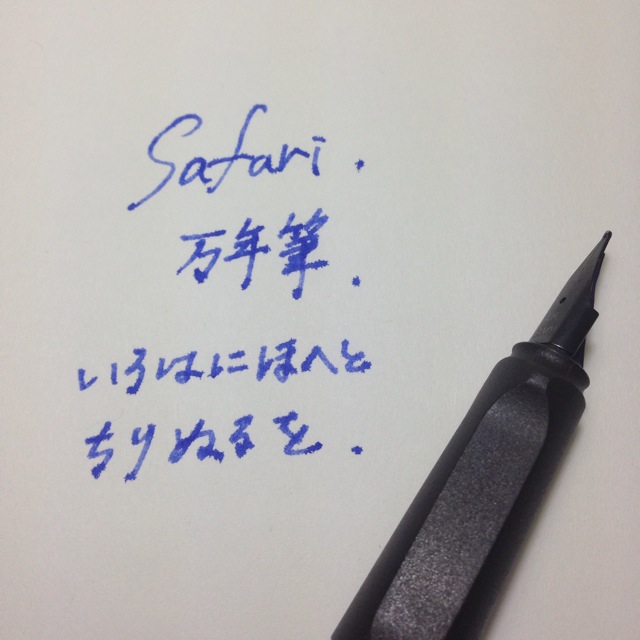 Safari.
万年筆.
いろはにほへと
ちりぬるを.